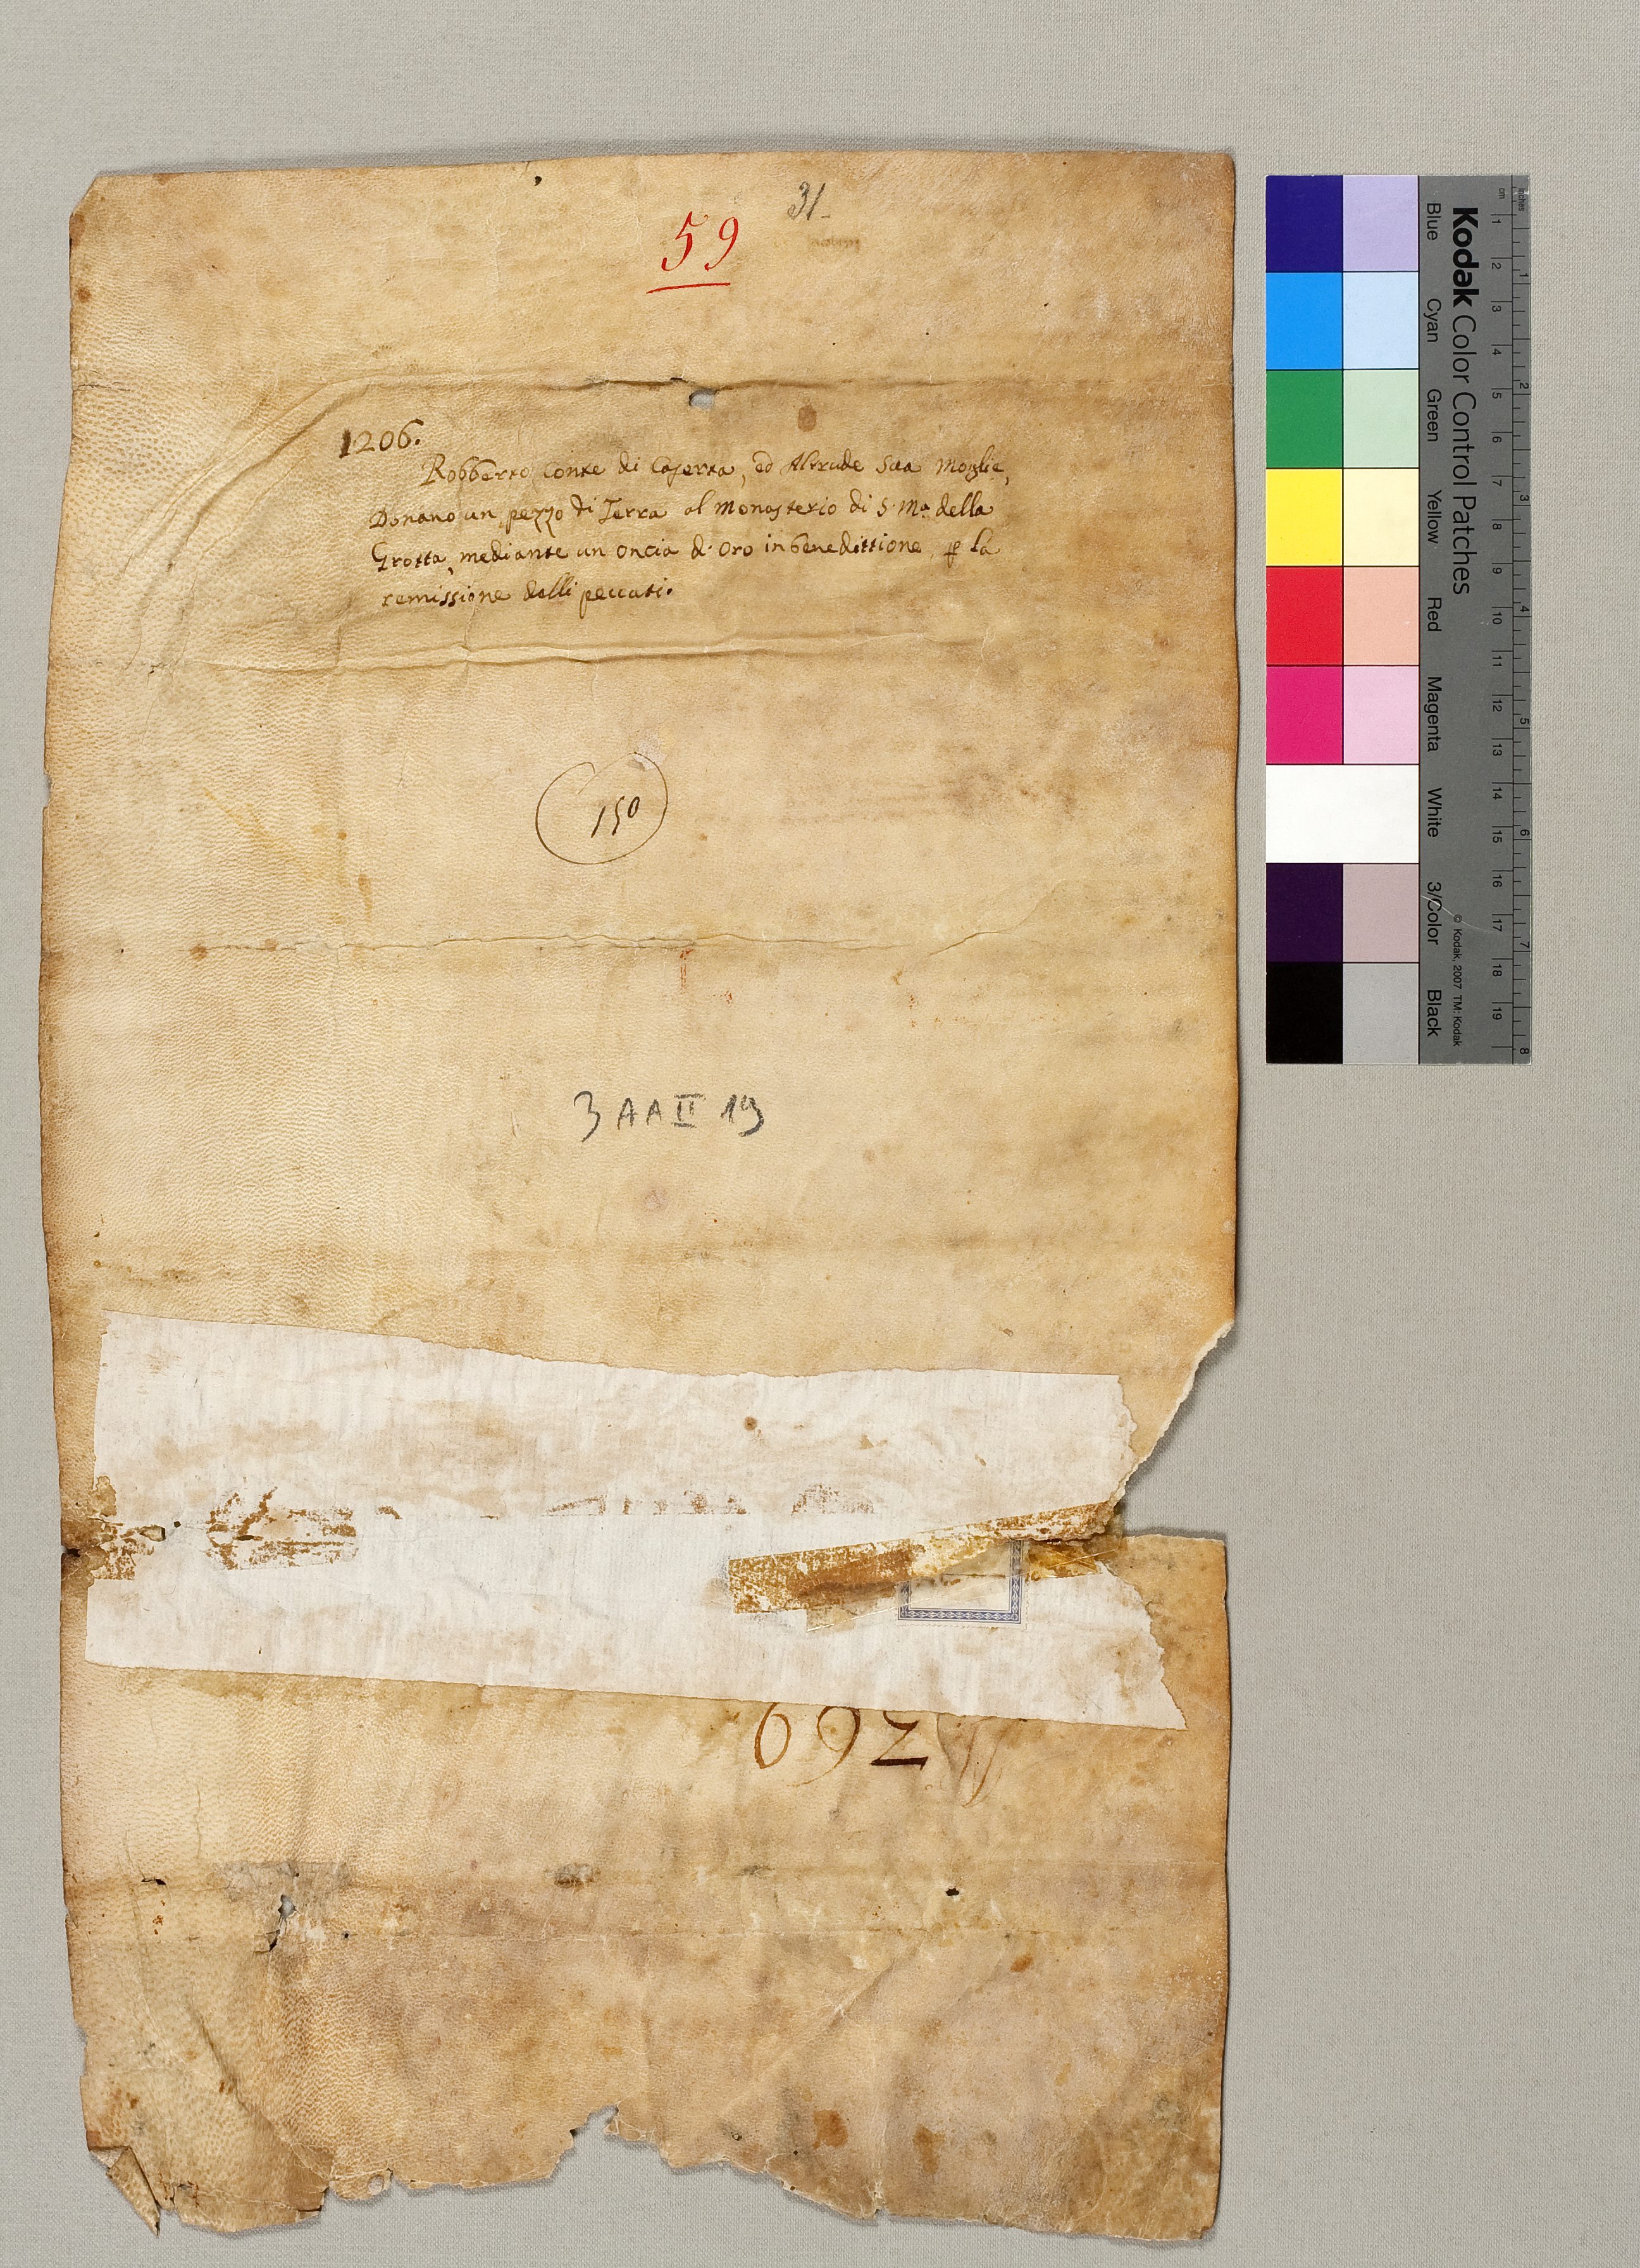 31
59
1206.
Robberto Conte di Caserta, ed Altrude Sua Moglie,
Donano un pezzo di Terra al Monasterio di S. Mª della
Grotta, mediante un oncia d'Oro in benedittione, ꝑ la
remissione delli peccati.
150
3 AA II 19
269
Kodak Color Control Patches
Blue Cyan Green Yellow Red Magenta White 3/Color Black
© Kodak, 2007 TM: Kodak
cm 1 2 3 4 5 6 7 8 9 10 11 12 13 14 15 16 17 18 19
inches 1 2 3 4 5 6 7 8